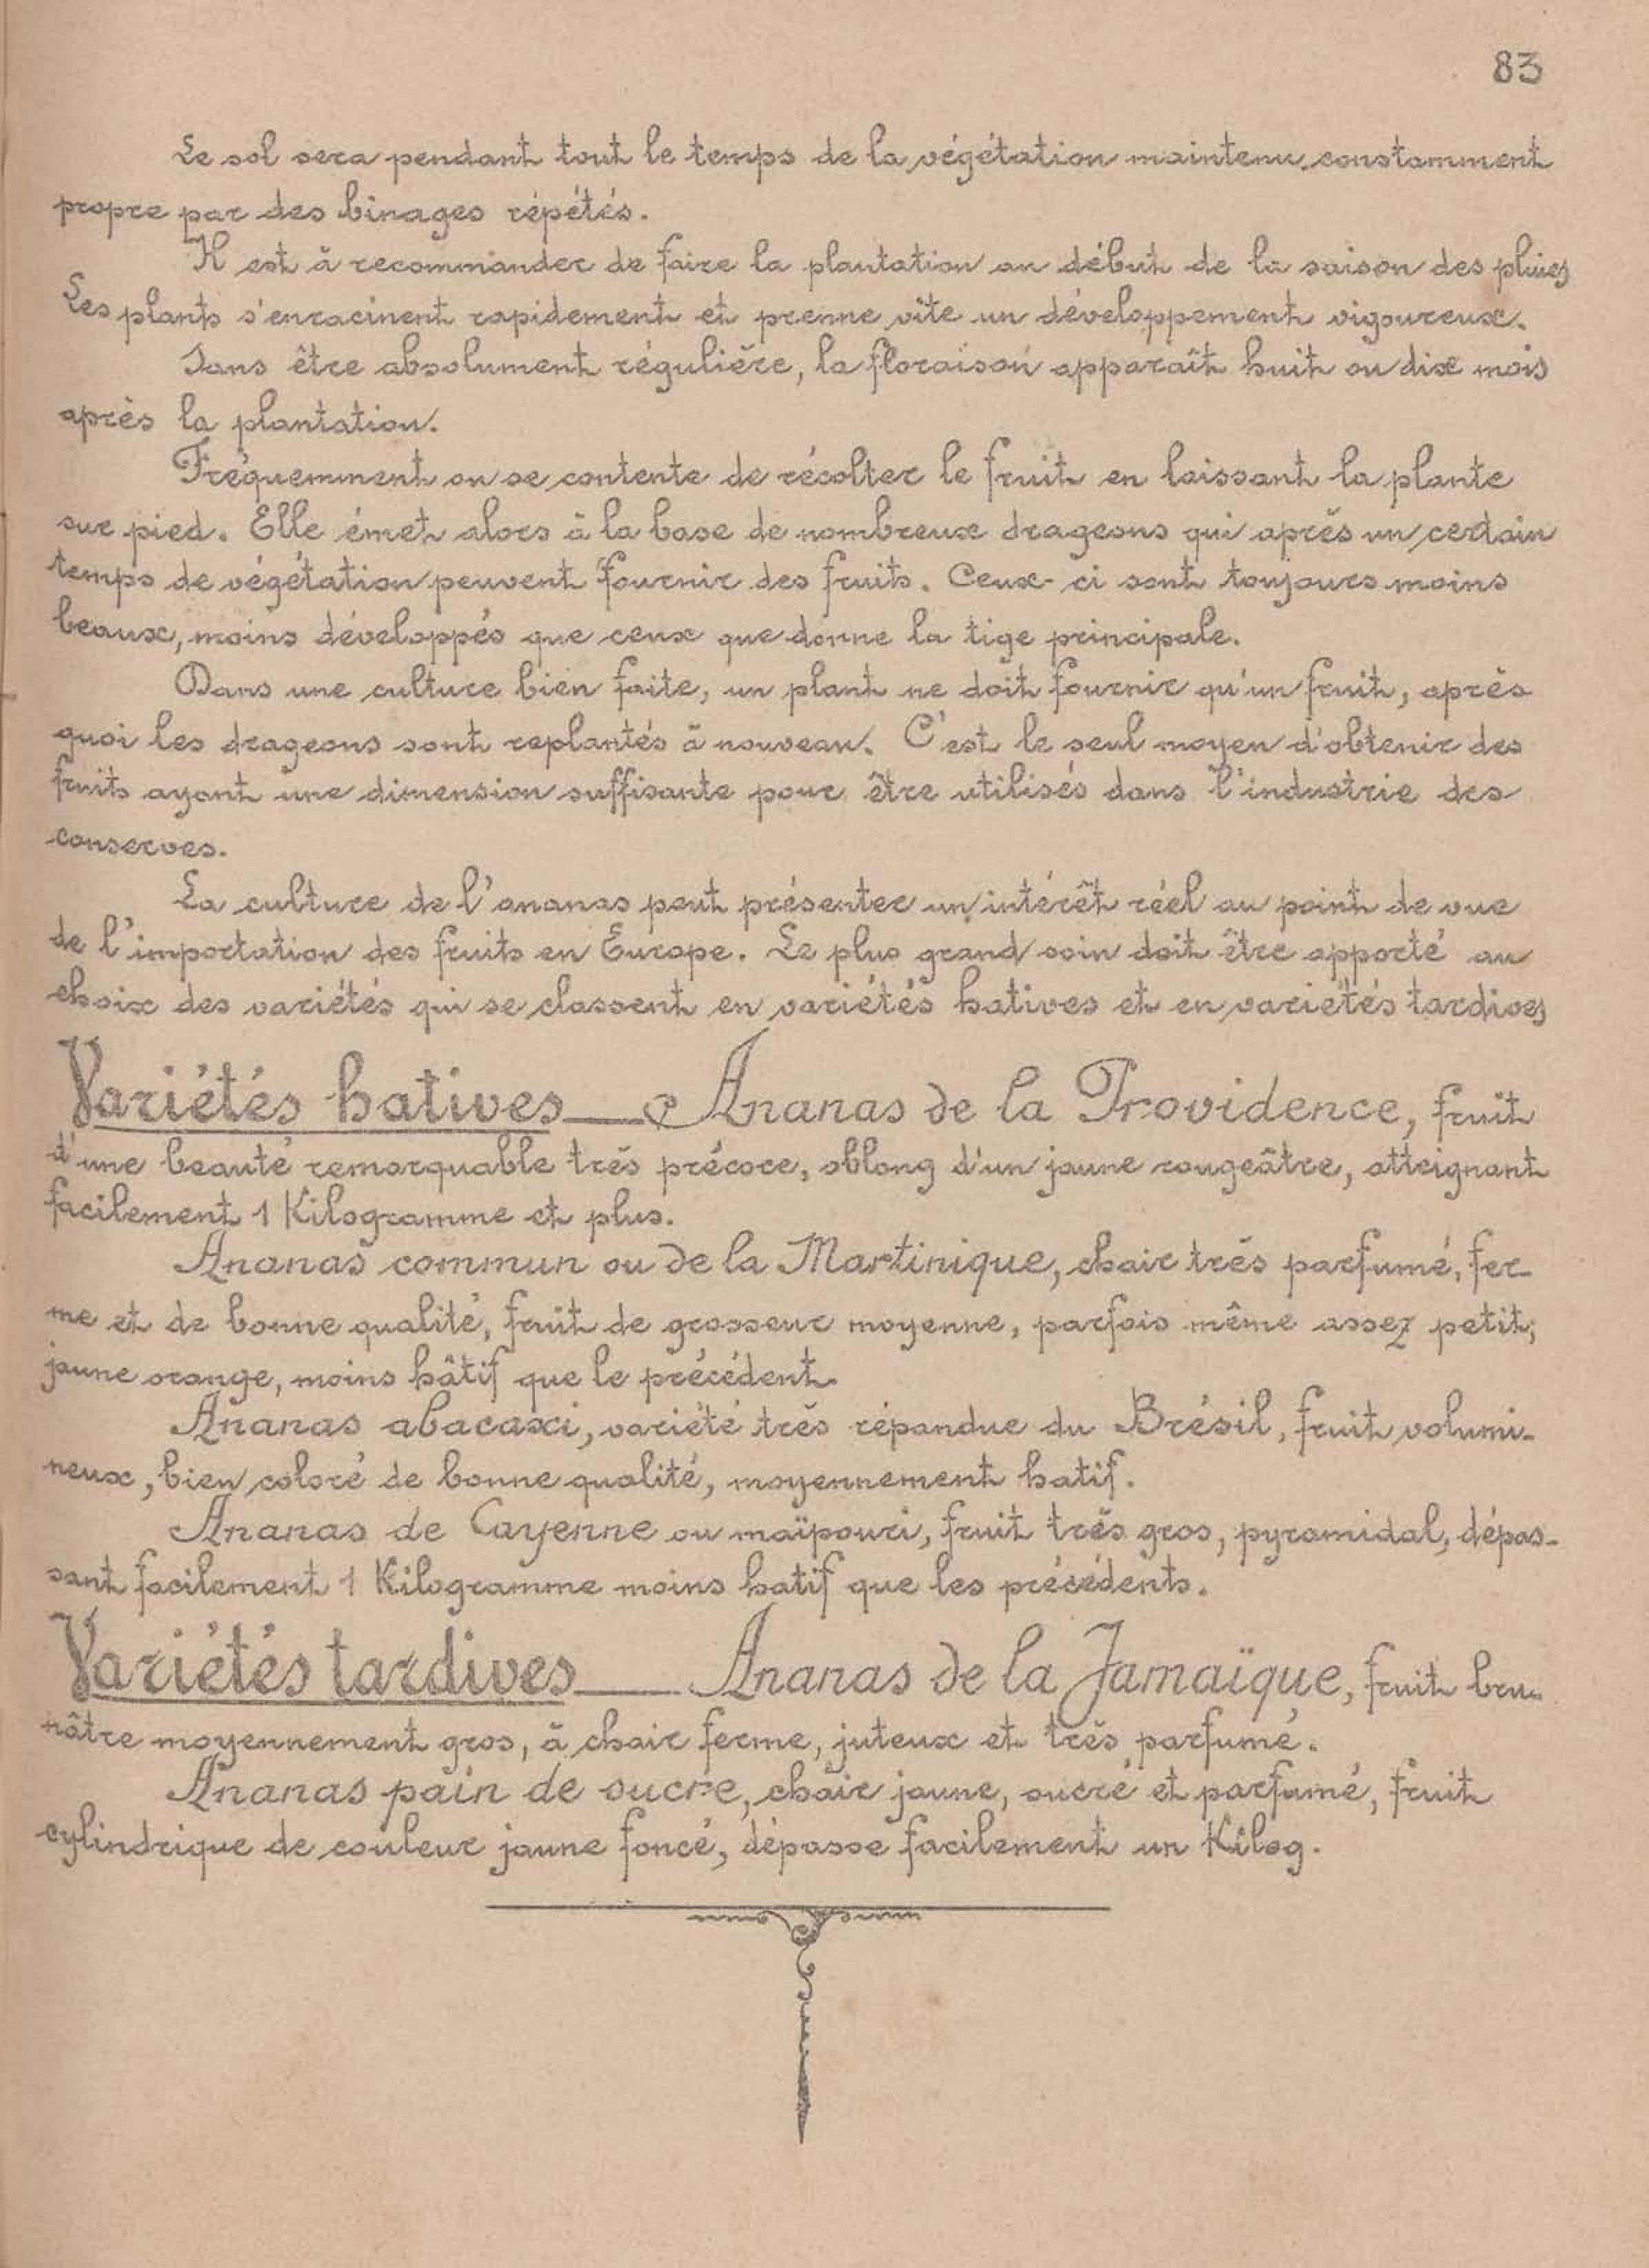 83
Le sol sera pendant tout le temps de la végétation maintenu constamment
propre par des binages répétés.
Il est à recommander de faire la plantation au début de la saison des pluies
Les plants s'enracinent rapidement et prenne vite un développement vigoureux.
Sans être absolument régulière, la floraison apparaît huit ou dix mois
après la plantation.
Fréquemment on se contente de récolter le fruit en laissant la plante
sur pied. Elle émet alors à la base de nombreux drageons qui après un certain
temps de végétation peuvent fournir des fruits. Ceux-ci sont toujours moins
beaux, moins développés que ceux que donne la tige principale.
Dans une culture bien faite, un plant ne doit fournir qu'un fruit, après
quoi les drageons sont replantés à nouveau. C'est le seul moyen d'obtenir des
fruits ayant une dimension suffisante pour être utilisés dans l'industrie des
conserves.
La culture de l'ananas peut présenter un intérêt réel au point de vue
de l'importation des fruits en Europe. Le plus grand soin doit être apporté au
choix des variétés qui se classent en variétés hatives et en variétés tardives
Variétés hatives — Ananas de la Providence, fruit
d'une beauté remarquable très précoce, oblong d'un jaune rougeâtre, atteignant
facilement 1 Kilogramme et plus.
Ananas commun ou de la Martinique, chair très parfumé, fer-
me et de bonne qualité, fruit de grosseur moyenne, parfois même assez petit,
jaune orange, moins hâtif que le précédent.
Ananas abacaxi, variété très répandue du Brésil, fruit volumi-
neux, bien coloré de bonne qualité, moyennement hatif.
Ananas de Cayenne ou maïpouri, fruit très gros, pyramidal, dépas-
sant facilement 1 Kilogramme moins hatif que les précédents.
Variétés tardives — Ananas de la Jamaïque, fruit bru-
nâtre moyennement gros, à chair ferme, juteux et très parfumé.
Ananas pain de sucre, chair jaune, sucré et parfumé, fruit
cylindrique de couleur jaune foncé, dépasse facilement un Kilog.